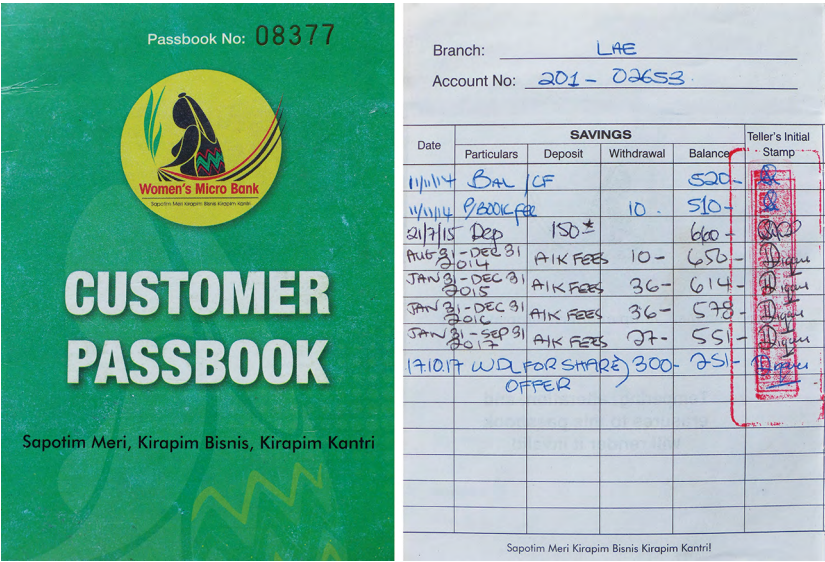 Passbook No: 08377
Women's Micro Bank
Sapotim Meri Kirapim Bisnis Kirapim Kantri
CUSTOMER
PASSBOOK
Sapotim Meri, Kirapim Bisnis, Kirapim Kantri
Branch: LAE
Account No: 201-02653
SAVINGS
Date Particulars Deposit Withdrawal Balance Teller's Initial Stamp
11/11/14 BAL /CF 520-
11/11/14 P/BOOK FEE 10. 510-
21/7/15 Dep 150 660-
AUG 31-DEC 31 2014 A/K FEES 10- 650-
JAN 31-DEC 31 2015 A/K FEES 36- 614-
JAN 31-DEC 31 2016 A/K FEES 36- 578-
JAN 31-SEP 31 2017 A/K FEES 27- 551-
17.10.17 WDL FOR SHARE OFFER 300- 251-
Sapotim Meri Kirapim Bisnis Kirapim Kantri!